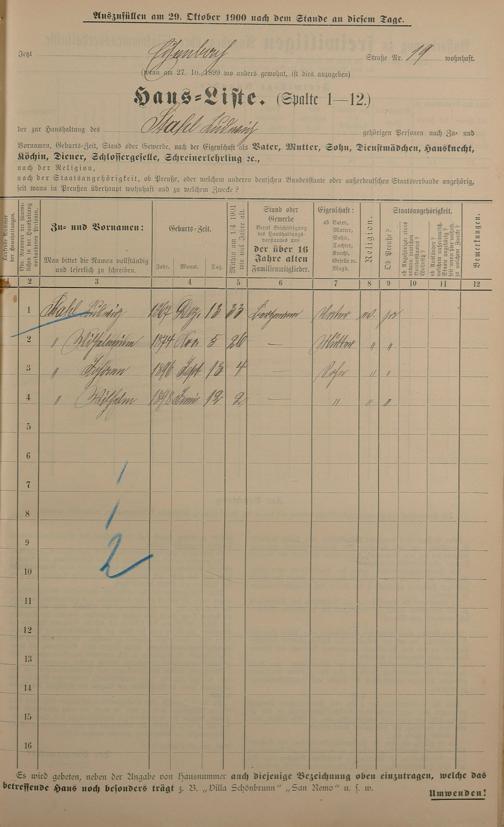 Auszufüllen am 29. Oktober 1900 nach dem Stande an diesem Tage.
Jetzt Straße Nr. 19 wohnhaft.
(wenn am 27. 10. 1899 wo anders gewohnt, ist dies anzugeben)
Haus-Liste. (Spalte 1—12.)
der zur Haushaltung des Stahl Ludwig gehörigen Personen nach Zu- und
Vornamen, Geburts-Zeit, Stand oder Gewerbe, nach der Eigenschaft als Vater, Mutter, Sohn, Dienstmädchen, Hausknecht,
Köchin, Diener, Schlossergeselle, Schreinerlehrling ꝛc.,
nach der Religion,
nach der Staatsangehörigkeit, ob Preuße, oder welchem anderen deutschen Bundesstaate oder außerdeutschen Staatsverbande angehörig,
seit wann in Preußen überhaupt wohnhaft und zu welchem Zwecke?
Zu- und Vornamen:
Man bittet die Namen vollständig
und leserlich zu schreiben.
Geburts-Zeit.
Jahr. Monat. Tag.
Stand oder
Gewerbe
der über 16
Jahre alten
Familienmitglieder.
Eigenschaft:
ob Vater,
Mutter,
Sohn,
Tochter,
Knecht,
Magd.
Religion.
Staatsangehörigkeit.
Ob Preuße?
Bemerkungen.
2 3 4 5 6 7 8 9 10 11 12
1 Stahl Ludwig 1867 Dez. 13 33 Vater ev. ja
2 " Wilhelmine 1874 Nov 5 26 — Mutter " "
3 " 1896 Sept 13 4 — Sohn " "
4 " Wilhelm 1898 Juni 12 2 — " " "
5
6
7
8
9
10
11
12
13
14
15
16
1
1
2
Es wird gebeten, neben der Angabe von Hausnummer auch diejenige Bezeichnung oben einzutragen, welche das
betreffende Haus noch besonders trägt z. B. „Villa Schönbrunn" „San Remo" u. s. w.
Umwenden!